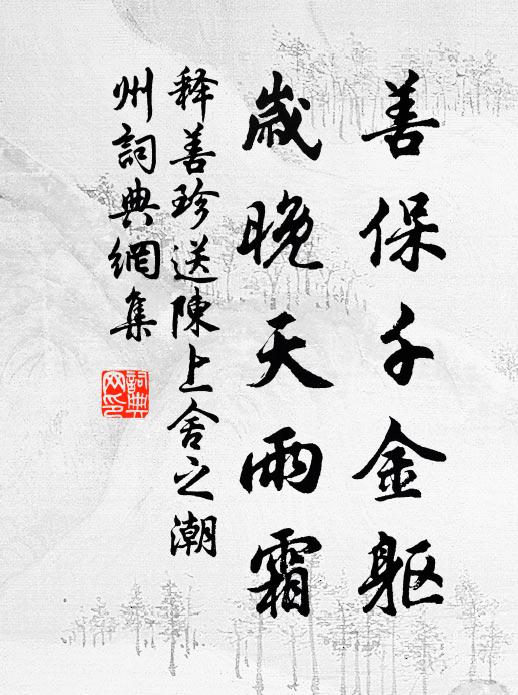 善保千金躯
歲晚天雨霜
释善珍送陳上舍之潮
州詞典網集
詞典网印